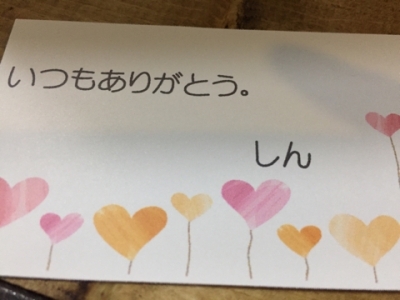 いつもありがとう。
しん